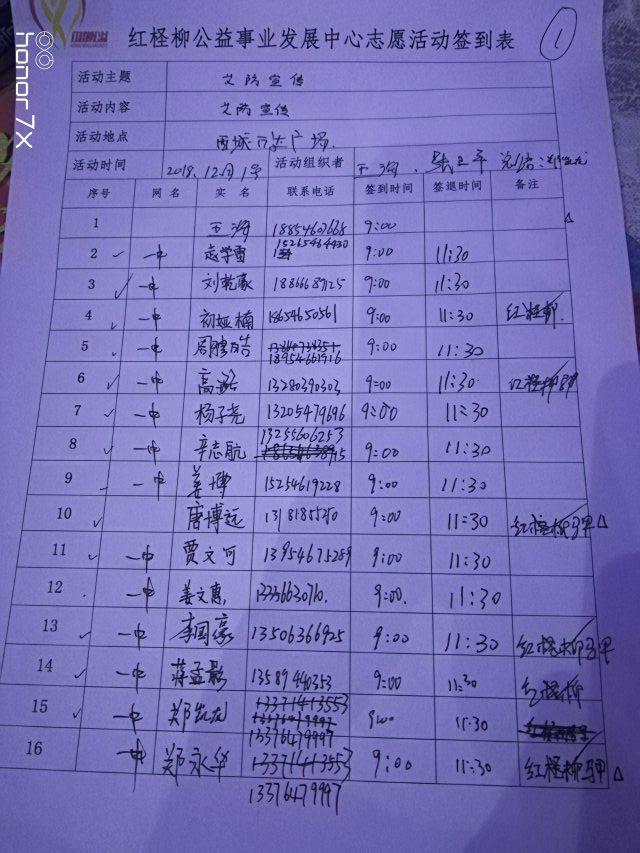 honor 7x
红柽柳公益事业发展中心志愿活动签到表
1
活动主题 艾防宣传
活动内容 艾防宣传
活动地点 西城 广场
活动时间 2018.12月1号 活动组织者 王海
序号 网名 实名 联系电话 签到时间 签退时间 备注
1 王海 18854607668 9:00
2 一中 15265464430 9:00 11:30
3 一中 刘乾豪 18866689125 9:00 11:30
4 一中 18654650561 9:00 11:30 红柽柳
5 一中 18954661916 9:00 11:30
6 一中 高 13280390303 9:00 11:30 红柽柳
7 一中 杨子尧 13205479696 9:00 11:30
8 一中 辛志航 13255606253 9:00 11:30
9 一中 姜坤 15254619228 9:00 11:30
10 唐博远 9:00 11:30 红柽柳马甲
11 一中 贾文可 13954675289 9:00 11:30
12 一中 姜文惠 9:00 11:30
13 一中 李国豪 13506366925 9:00 11:30 红柽柳马甲
14 一中 蒋孟影 13589440353 9:00 11:30 红柽柳
15 一中 郑凯龙 13376479997 9:00 11:30
16 一中 郑永华 13376479997 9:00 11:30 红柽柳马甲